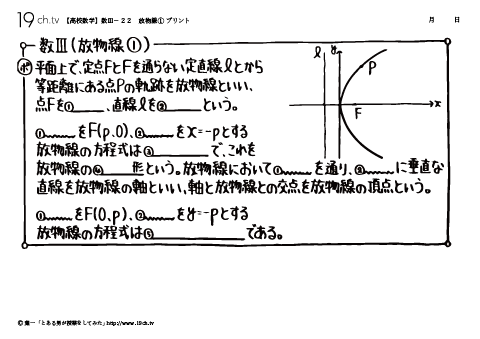 19ch.tv 【高校数学】数Ⅲ-22 放物線① プリント 月 日
数Ⅲ(放物線①)
ポ 平面上で、定点FとFを通らない定直線ℓとから
等距離にある点Pの軌跡を放物線といい、
点Fを①______、直線ℓを②______という。
①______をF(p,0)、②______をx=-pとする
放物線の方程式は③____________で、これを
放物線の④______形という。放物線において①______を通り、②______に垂直な
直線を放物線の軸といい、軸と放物線との交点を放物線の頂点という。
①______をF(0,p)、②______をy=-pとする
放物線の方程式は⑤____________である。
ℓ y P F x
© 葉一「とある男が授業をしてみた」http://www.19ch.tv